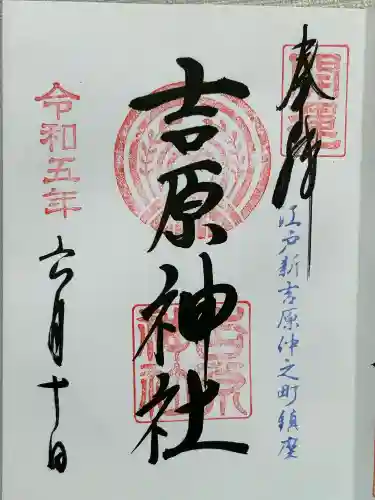 奉拝
開運
江戸新吉原仲之町鎮座
吉原神社
吉原神社
令和五年
六月十日